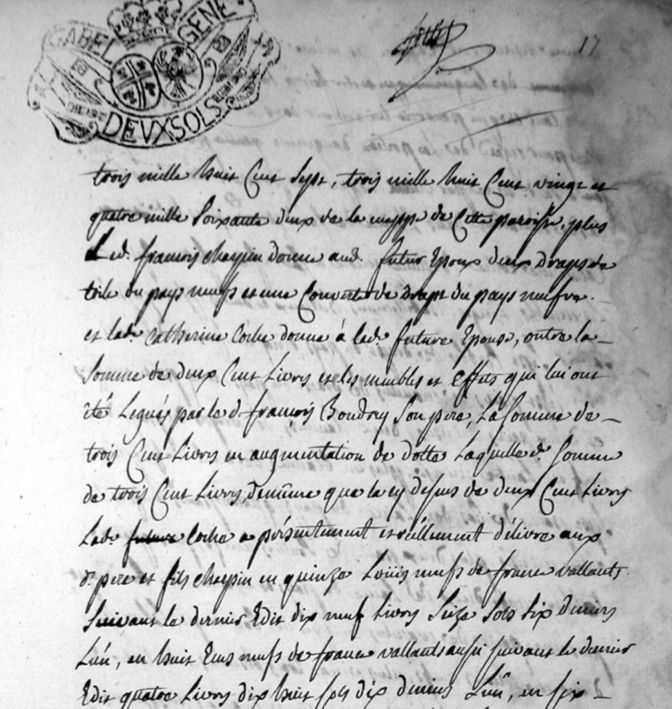 GABEL GENE
DEUX SOLS
17
trois mille huit Cent Sept, trois mille huit Cent vingt et
quatre mille Soixante deux de la mappe de Cette paroisse, plus
Led. françois chappin donne aud. futur Epoux deux draps de
toile du pays neufs et une Couverte de drapt du pays neufve.
et lad. Catherine Coche donne à lad. future Epouse, outre la
Somme de deux Cent Livres et les meubles et Effets qui lui ont
été Legués par le d. françois Boudrey Son pere, La Somme de
trois Cent Livres en augmentation de dotte Laquelle d. Somme
de trois Cent Livres, de même que la cy dessus de deux Cent Livres
Lad. future Coche a présentement et réellement délivré aux
d. pere et fils chappin en quinze Loüis neufs de france vallants
Suivant le dernier Edit dix neuf Livres Seize Sols Six deniers
L'un, en huit Ecus neufs de france vallants aussi suivant le dernier
Edit quatre Livres dix huit sols dix deniers L'un, en six